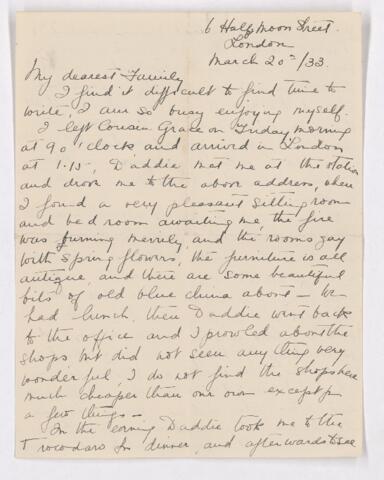 6 Half Moon Street.
London
March 20th/33.
My dearest Family
I find it difficult to find time to
write, I am so busy enjoying myself.
I left Cousin Grace on Friday morning
at 9 o'clock and arrived in London
at 1.15, Daddie met me at the station
and drove me to the above address, where
I found a very pleasant sitting room
and bed room awaiting me, the fire
was burning merrily, and the rooms gay
with spring flowers, the furniture is all
antique, and there are some beautiful
bits of old blue china about - We
had lunch, then Daddie went back
to the office and I prowled about the
shops but did not see anything very
wonderful, I do not find the shops here
much cheaper than our own except for
a few things -
In the evening Daddie took me to the
Trocadaro for dinner, and afterwards to see